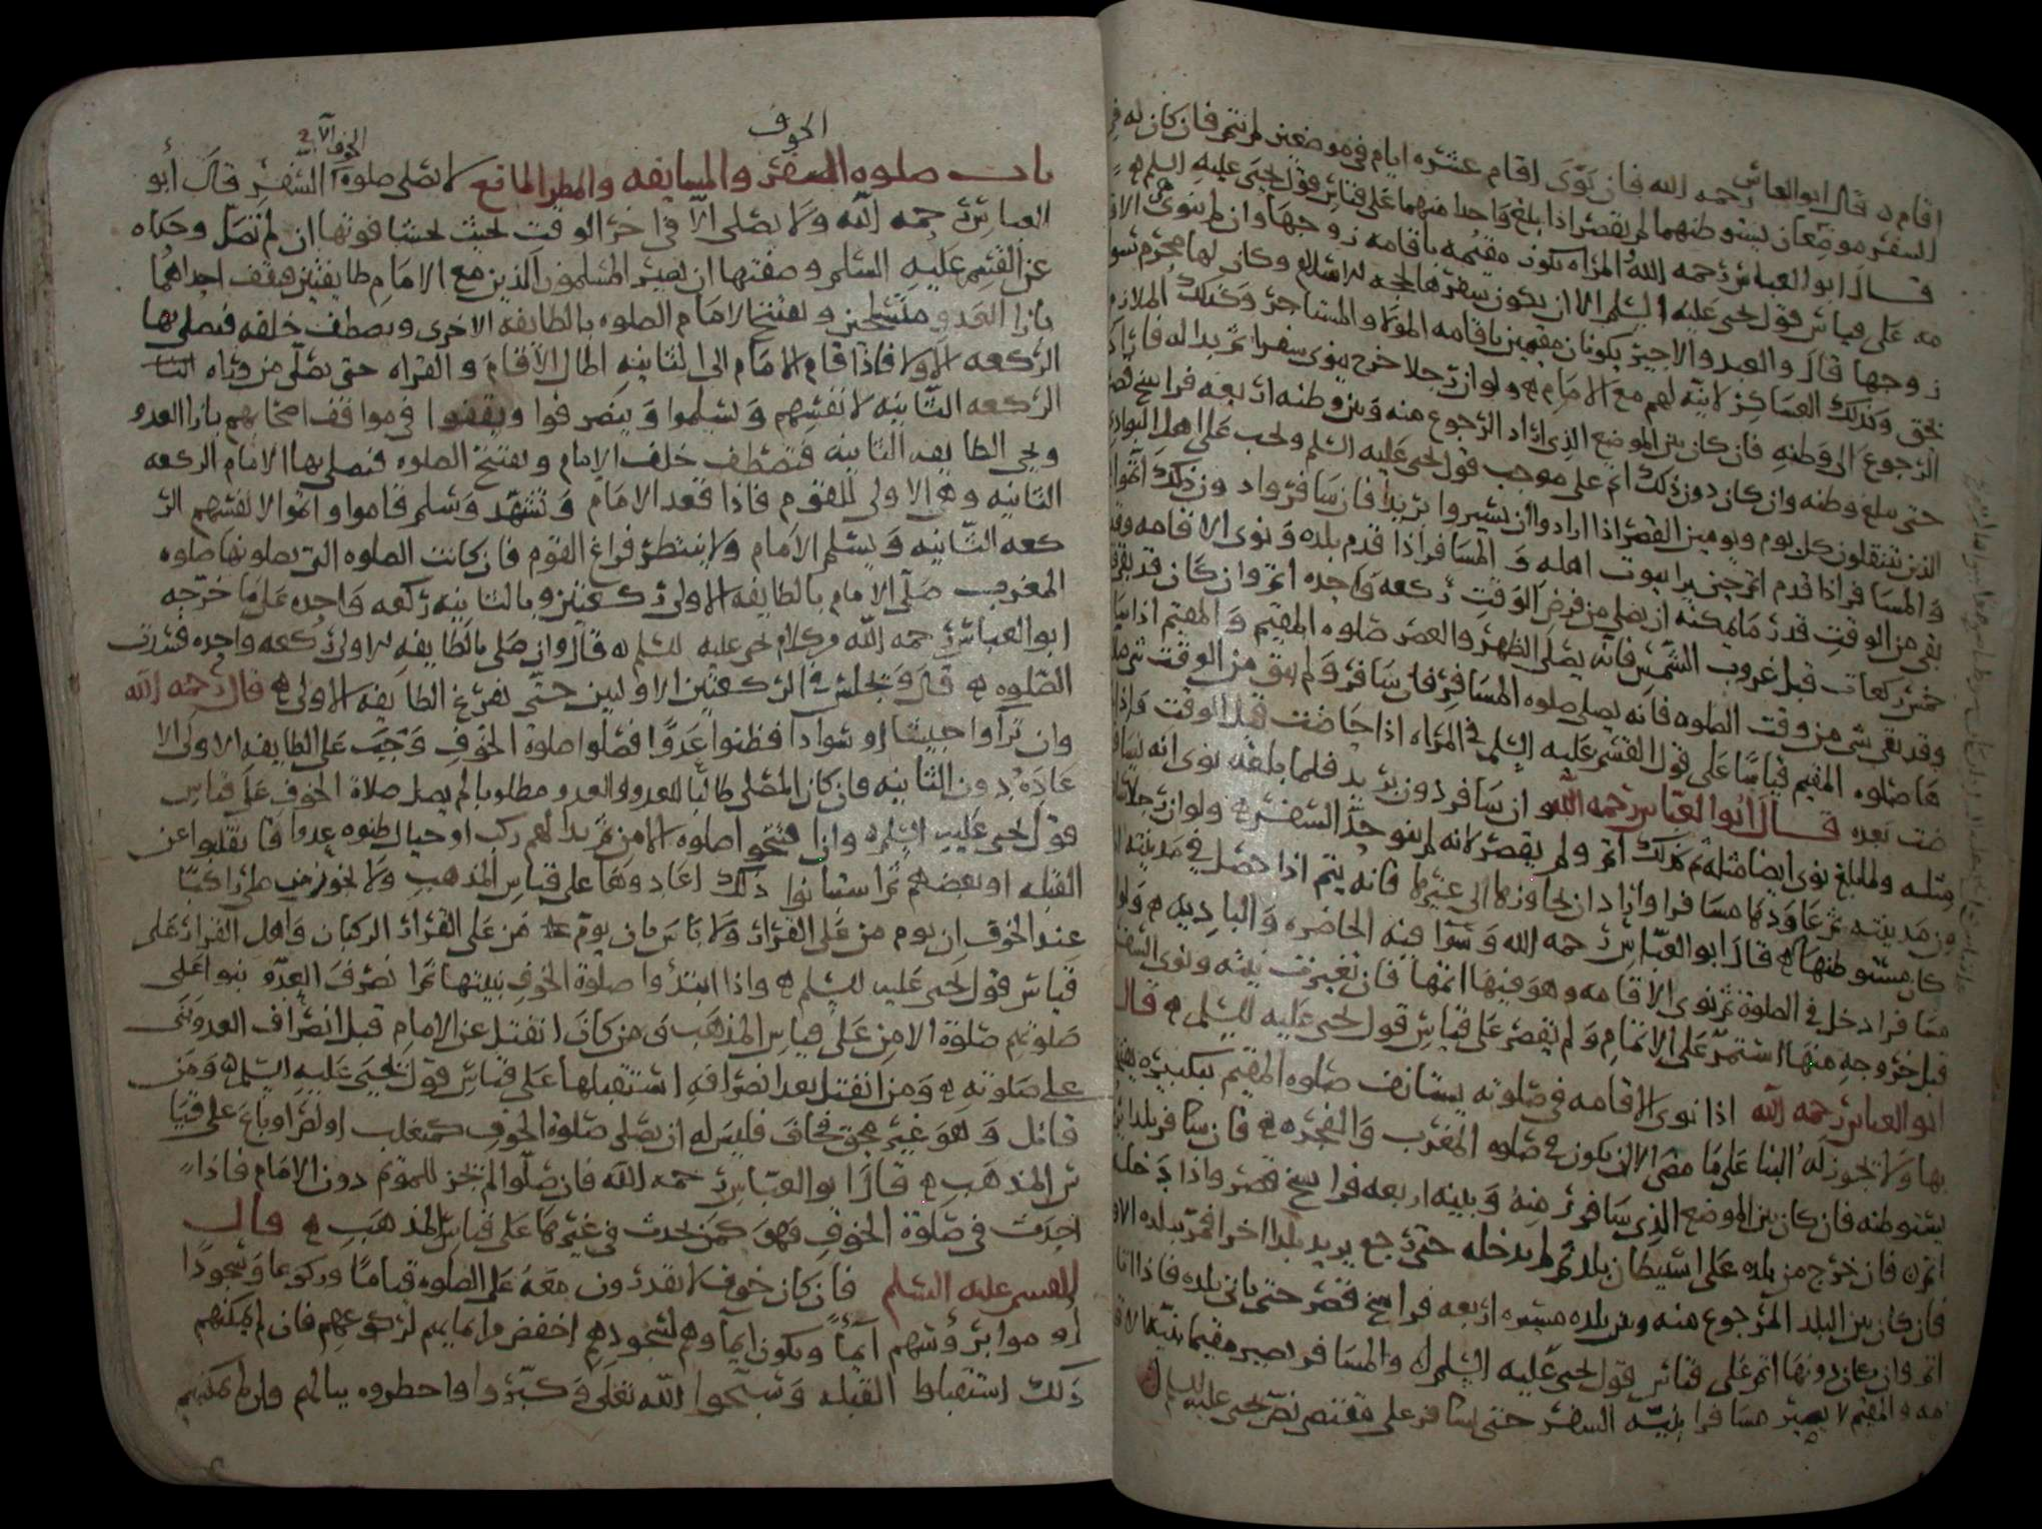 اقام ه قال ابو العباس رحمه الله فان نوى اقام عشره ايام في موضعين لم يتم فان كان له في
السفر موضعان يستوطنهما لم يقصر اذا بلغ واحدا منهما على قياس قول يحيى عليه السلم ه
قال ابو العباس رحمه الله المراه تكون مقيمه باقامه زوجها وان لم تنوى هي الاقا
مه على قياس قول يحيى عليه السلم الا ان يكون سفرها لحجه الاسلام وكان لها محرم سوى
زوجها قال والعبد والاجير يكونان مقيمين باقامه المولا والمستاجر وكذلك الملازم
بحق وكذلك العساكر لانيه لهم مع الامام ه ولو ان رجلا خرج ينوى سفرا ثم بدا له فاراد
الرجوع الى وطنه فان كان بين الموضع الذي اراد الرجوع منه وبين وطنه اربعه فراسخ قصر
حتى يبلغ وطنه وان كان دون ذلك اتم على موجب قول يحيى عليه السلم ويجب على اهل البوادي
الذين ينتقلون كل يوم ويومين القصر اذا ارادوا ان يسيروا بريدا فان سافروا دون ذلك اتموا
والمسافر اذا قدم اتم حين يرا بيوت اهله والمسافر اذا قدم بلده ونوى الاقامه وقد
بقى من الوقت قدر ما يمكنه ان يصلي من فرض الوقت ركعه واحده اتم وان كان قد بقى
خمس ركعات قبل غروب الشمس فانه يصلي الظهر والعصر صلوه المقيم والمقيم اذا سا
وقد بقى شي من وقت الصلوه فانه يصلي صلوه المسافر فان سافر ولم يبق من الوقت شي صلا
ها صلوه المقيم قياسا على قول القسم عليه السلم في المراه اذا حاضت قبل الوقت
ضت بعده قال ابو العباس رحمه الله لو ان سافر دون بريد فلما بلغه نوى انه يسافر
مثله ولما بلغ نوى ايضا مثله ثم كذلك اتم ولم يقصر لانه لم ينو حد السفر ه ولو ان رجلا
من مدينته ثم عاودها مسافرا واراد ان يجاوزها الى غيرها فانه يتم اذا حصل في مدينته
كان مستوطنها ه قال ابو العباس رحمه الله وسوا فيه الحاضره والباديه ه
مسافرا دخل في الصلوة ثم نوى الاقامه وهو فيها اتمها فان تغيرت نيته ونوى السفر
قبل خروجه منها استمر على الاتمام ولم يقصر على قياس قول يحيى عليه السلم ه قال
ابو العباس رحمه الله اذا نوى الاقامه في صلوته يستانف صلوه المقيم بتكبيره
بها ولا يجوز له البنا على ما مضى الا ان يكون في صلوه المغرب والفجر ه فان سافر بلدا
يستوطنه فان كان بين الموضع الذي سافر منه وبينه اربعه فراسخ قصر واذا دخل
اتم ه فان خرج من بلده على استيطان بلد ثم لم يدخله حتى رجع يريد بلدا اخر فمر ببلده الاول
فان كان بين البلد المرجوع منه وبين بلده مسيره اربعه فراسخ قصر حتى ياتي بلده فاذا اتا
اتم وان كان دونها اتم على قياس قول يحيى عليه السلم ه والمسافر يصير مقيما بنيه الاقا
مه والمقيم لا يصير مسافرا بنيه السفر حتى يسافر على مقتضى نص يحيى عليه السلم ه
الخوف
باب صلوه السفر والمسايفه والمطر المانع لا تصلى صلوه السفر قال ابو
الخوف الا في
العباس رحمه الله ولا يصلى الا في اخر الوقت بحيث يخشا فوتها ان لم تصل وحكاه
عن القسم عليه السلم وصفتها ان يصير المسلمون الذين مع الامام طايفتين فتقف احداهما
بازا العدو متسلحين ويفتتح الامام الصلوه بالطايفه الاخرى ويصطف خلفه فيصلي بها
الركعه الاولا فاذا قام الامام الى الثانيه اطال الاقام والقراه حتى يصلي من وراه
الركعه الثانيه لانفسهم ويسلموا وينصرفوا ويقفوا في مواقف اصحابهم بازا العدو
وتجي الطايفه الثانيه فتصطف خلف الامام ويفتتح الصلوه فيصلي بها الامام الركعه
الثانيه وهي الاولى للقوم فاذا قعد الامام وتشهد وسلم قاموا واتموا لانفسهم الر
كعه الثانيه ويسلم الامام ولا ينتظر فراغ القوم فان كانت الصلوه التي يصلونها صلوه
المغرب صلى الامام بالطايفه الاولى ركعتين وبالثانيه ركعه واحده على ما خرجه
ابو العباس رحمه الله من كلام يحيى عليه السلم ه قال وان صلى بالطايفه الاولى ركعه واحده فسدت
الصلوه ه قال ويجلس في الركعتين الاولين حتى تفرغ الطايفه الاولى ه قال رحمه الله
وان تراوا جيشا او سوادا فظنوا عدوا فصلوا صلوة الخوف وجب على الطايفه الاولى الا
عاده دون الثانيه فان كان المصلى طالبا للعدو والعدو مطلوبا لم يصل صلاة الخوف على قياس
قول يحيى عليه السلم ه واذا افتتحوا صلوه الامن ثم بدا لهم ركب او خيال ظنوه عدوا فانقلبوا عن
القبله او بعضهم ثم استبانوا ذلك اعادوها على قياس المذهب ولا يجوز من راكبا
عند الخوف ان يوم من على القرار ولا باس بان يوم من على القرار الركبان واهل القرار على
قياس قول يحيى عليه السلم ه واذا ابتدوا صلوة الخوف بنيتها ثم انصرف العدو بنوا على
صلوتهم صلوة الامن على قياس المذهب ومن كان انفتل عن الامام قبل انصراف العدو بنى
على صلوته ه ومن انفتل بعد انصرافه استقبلها على قياس قول يحيى عليه السلم ه ومن
قاتل وهو غير محق فخاف فليس له ان يصلى صلوة الخوف كمتغلب او لص او باغ على قيا
س المذهب ه قال ابو العباس رحمه الله فان صلوا لم يجز للموتم دون الامام فاذا
احدث في صلوة الخوف فهو كمن يحدث في غيرها على قياس المذهب ه قال
القسم عليه السلم فان كان خوف لا يقدرون معه على الصلوه قياما وركوعا وسجودا
او موا برؤسهم ايمأ ويكون ايماوهم لسجودهم اخفض من ايمايهم لركوعهم فان لم يمكنهم
ذلك استقبلوا القبله وسبحوا الله تعلى وكبروا واحطروه ببالهم وان لم يمكنهم